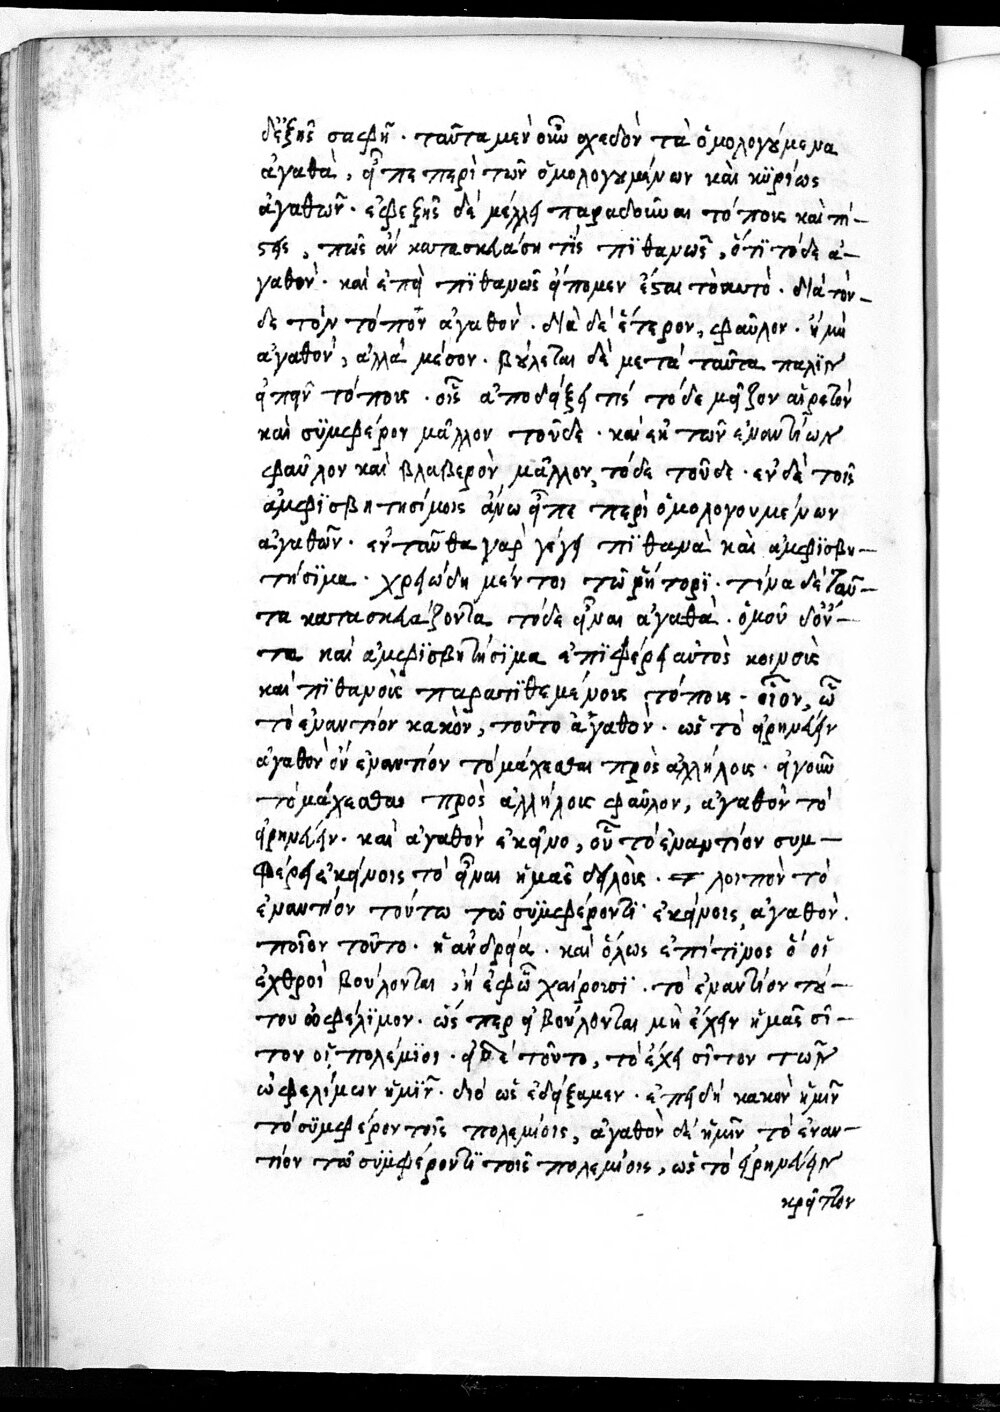 δείξης σαφῆ. ταῦτα μὲν οὖν σχεδὸν τὰ ὁμολογούμενα
ἀγαθὰ, εἶπε περὶ τῶν ὁμολογουμένων καὶ κυρίως
ἀγαθῶν. ἐφεξῆς δὲ μέλλει παραδοῦναι τόποις καὶ πί-
στεις, πῶς ἂν κατασκευάση τίς πιθανῶς, ὅτι τόδε ἀ-
γαθόν. καὶ ἐπεὶ πιθανῶς εἴπομεν ἔσται τοαυτό. διὰ τόν-
δε τὸν τόπον ἀγαθὸν. διὰ δὲ ἕτερον, φαῦλον. ἢ μὴ
ἀγαθὸν, ἀλλὰ μέσον. βούλεται δὲ μετὰ ταῦτα πάλιν
εἰπεῖν τόποις. οἷς ἀποδείξει τίς τόδε μεῖζον αἱρετὸν
καὶ συμφέρον μᾶλλον τοῦδε. καὶ ἐκ τῶν ἐναντίων
φαῦλον καὶ βλαβερὸν μᾶλλον τόδε τοῦδε. ἐν δὲ τοῖς
ἀμφισβητησίμοις ἄνω εἶπε περὶ ὁμολογουμένων
ἀγαθῶν. ἐνταῦθα γὰρ λέγει πιθανὰ καὶ ἀμφισβη-
τήσιμα. χρειώδη μέντοι τῶ ῥήτορι. τίνα δὲ ταῦ-
τα κατασκευάζοντα τόδε εἶναι ἀγαθὰ. ὁμοῦ δὄν-
τα καὶ ἀμφισβητήσιμα ἐπιφέρει αὐτὸς κοινοῖς
καὶ πιθανοῖς παρατιθεμένοις τόποις. οἷον, ὧ
τὸ ἐναντίον κακὸν, τοῦτο ἀγαθὸν. ὡς τὸ εἰρηνεύειν
ἀγαθὸν οὗ ἐναντίον τὸ μάχεσθαι πρὸς ἀλλήλοις. εἰ γοῦν
τὸ μάχεσθαι πρὸς ἀλλήλοις φαῦλον, ἀγαθὸν τὸ
εἰρηνεύειν. καὶ ἀγαθὸν ἐκεῖνο, οὗ τὸ ἐναντίον συμ-
φέρει ἐκείνοις τὸ εἶναι ἡμᾶς δειλοὺς. λοιπὸν τὸ
ἐναντίον τούτω τῶ συμφέροντι ἐκείνοις, ἀγαθὸν.
ποῖον τοῦτο. ἡ ἀνδρεία. καὶ ὅλως ἐπίτιμος ὃ οἱ
ἐχθροὶ βούλονται, ἢ ἐφ' ὧ χαίρουσι. τὸ ἐναντίον τού-
του ὠφέλιμον. ὥσπερ εἰ βούλονται μὴ ἔχειν ἡμᾶς σῖ-
τον οἱ πολέμιοι. εἰ δὲ τοῦτο, τὸ ἔχει σῖτον τῶν
ὠφελίμων ἡμῖν. διό ὡς ἐδείξαμεν. ἐπειδὴ κακὸν ἡμῖν
τὸ συμφέρον τοῖς πολεμίοις, ἀγαθὸν δὲ ἡμῖν τὸ ἐναν-
τίον τῶ συμφέροντι τοῖς πολεμίοις, ὡς τὸ εἰρηνεύειν
κρεῖττον